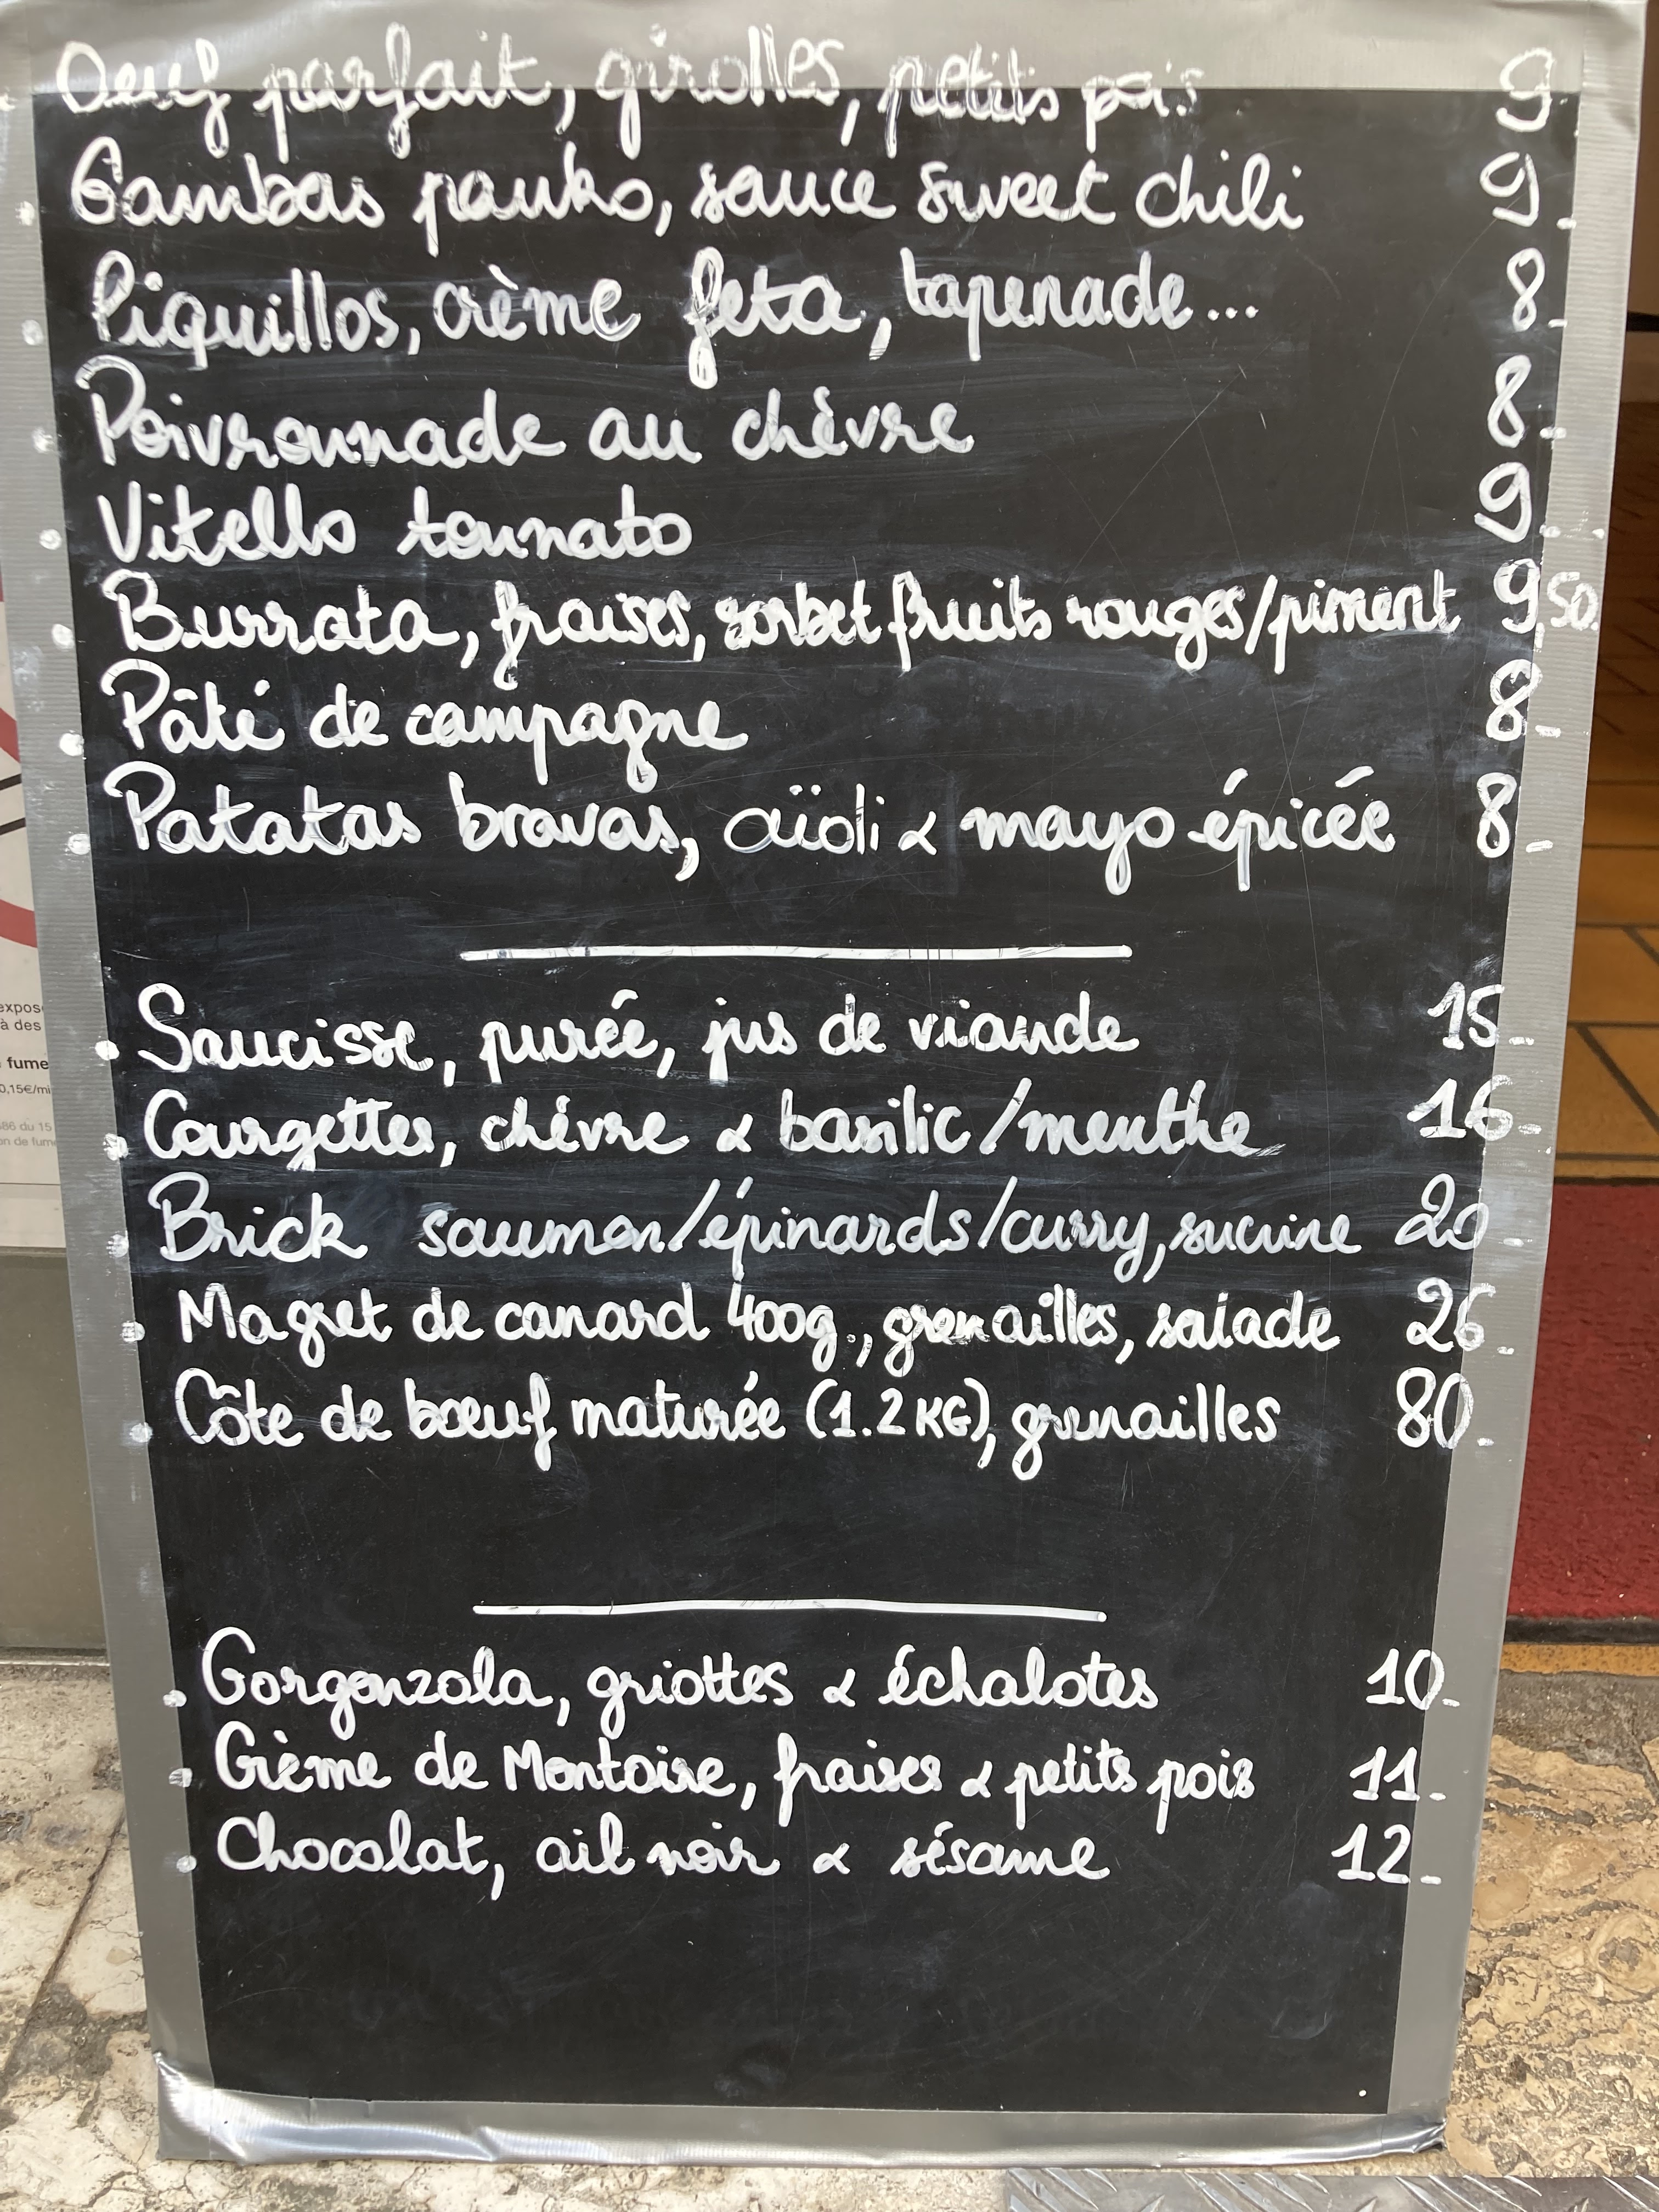 Oeuf parfait, girolles, petits pois 9
Gambas panko, sauce sweet chili 9.-
Piquillos, crème feta, tapenade... 8.-
Poivronnade au chèvre 8.-
Vitello tonnato 9.-
Burrata, fraises, sorbet fruits rouges/piment 9,50.
Pâté de campagne 8.-
Patatas bravas, aïoli & mayo épicée 8.-
Saucisse, purée, jus de viande 15.-
Courgettes, chèvre & basilic/menthe 16.-
Brick saumon/épinards/curry, sucrine 20.-
Magret de canard 400g., grenailles, salade 26.-
Côte de bœuf maturée (1.2KG), grenailles 80.-
Gorgonzola, griottes & échalotes 10.-
Crème de Montoire, fraises & petits pois 11.-
Chocolat, ail noir & sésame 12.-
expos
à des
fume
0,15€/mi
86 du 15
en de fume